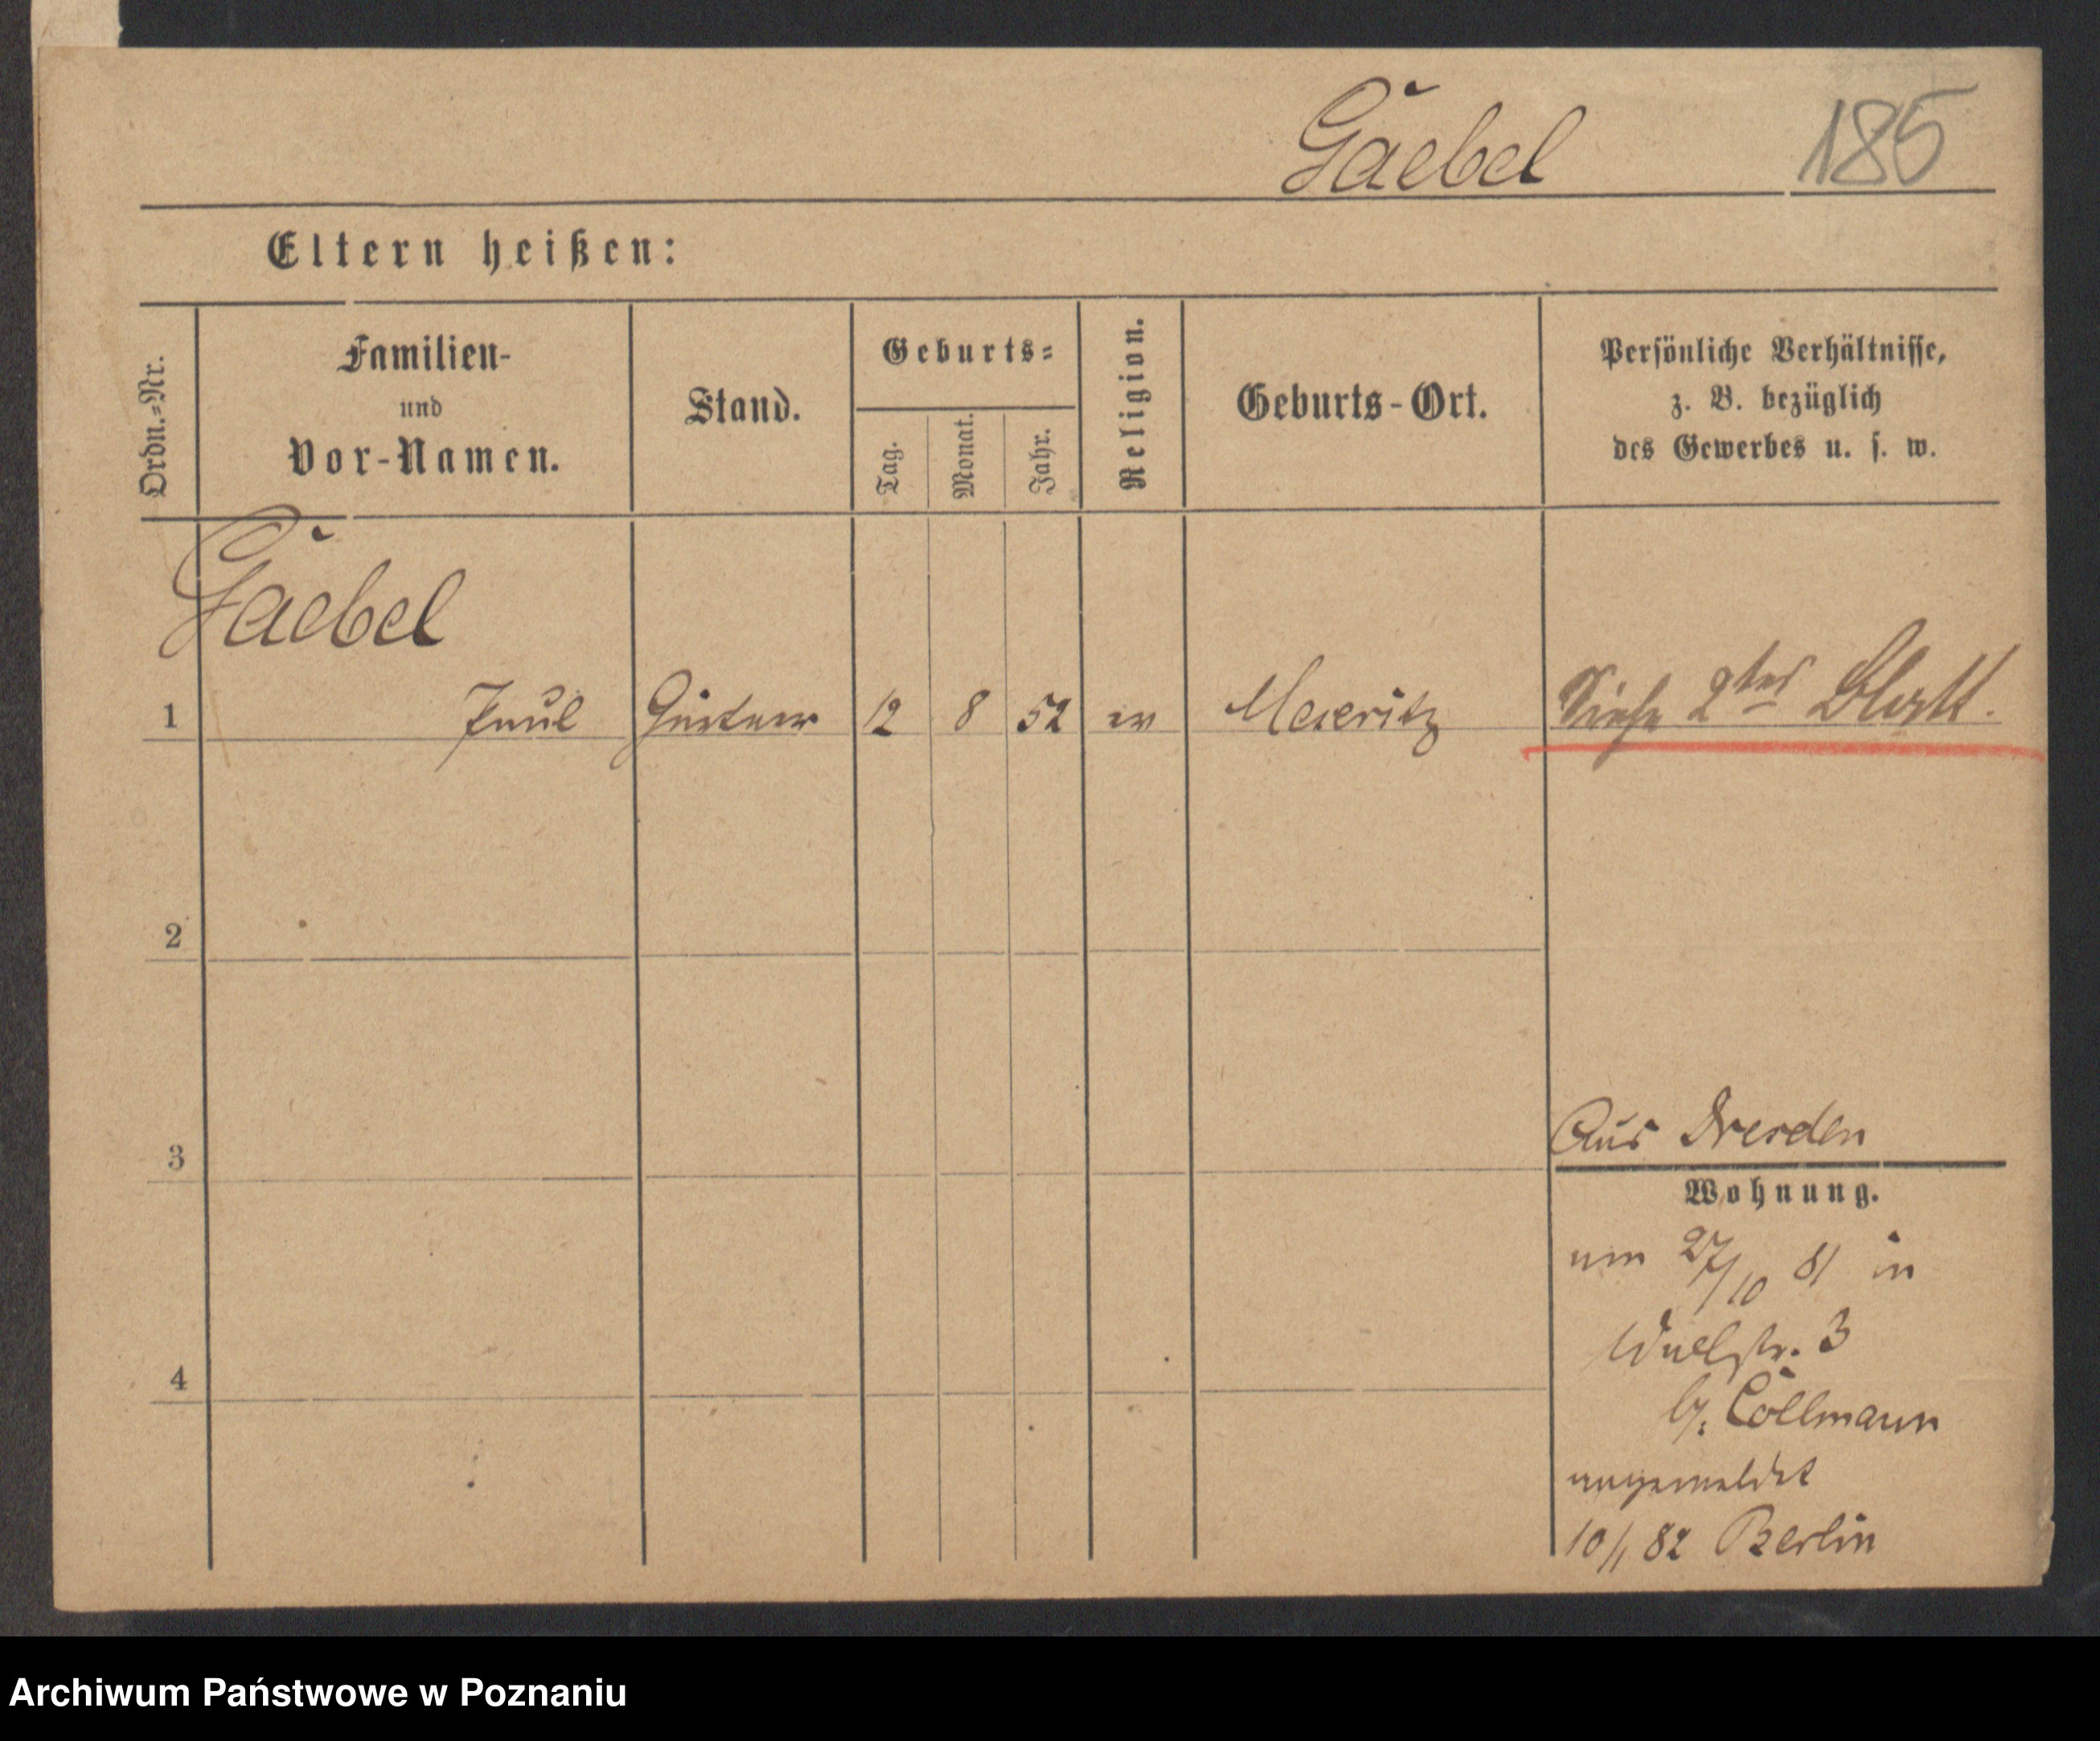 Gaebel 185
Eltern heißen:
Ordn.-Nr.
Familien-
und
Vor-Namen.
Stand.
Geburts-
Tag.
Monat.
Jahr.
Religion.
Geburts-Ort.
Persönliche Verhältnisse,
z. B. bezüglich
des Gewerbes u. s. w.
Gaebel
1 Paul Gärtner 12 8 52 ev Meseritz Siehe 2tes Blatt.
2
3
Aus Dresden
Wohnung.
am 27/10 81 in
str. 3
4
b/. Cöllmann
angemeldet
10/1 82 Berlin
Archiwum Państwowe w Poznaniu